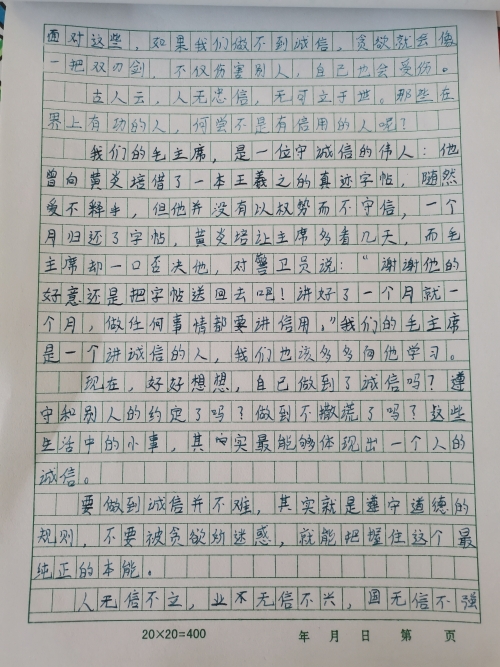 面对这些，如果我们做不到诚信，贪欲就会像
一把双刃剑，不仅伤害别人，自己也会受伤。
古人云，人无忠信，无可立于世。那些在
界上有功的人，何尝不是有信用的人呢？
我们的毛主席，是一位守诚信的伟人：他
曾向黄炎培借了一本王羲之的真迹字帖，随然
爱不释手，但他并没有以权势而不守信，一个
月归还了字帖，黄炎培让主席多看几天，而毛
主席却一口否决他，对警卫员说：“谢谢他的
好意还是把字帖送回去吧！讲好了一个月就一
个月，做任何事情都要讲信用。”我们的毛主席
是一个讲诚信的人，我们也该多多向他学习。
现在，好好想想，自己做到了诚信吗？遵
守和别人的约定了吗？做到不撒谎了吗？这些
生活中的小事，其中实最能够体现出一个人的
诚信。
要做到诚信并不难，其实就是遵守道德的
规则，不要被贪欲所迷惑，就能把握住这个最
纯正的本能。
人无信不立，业不无信不兴，国无信不强
20×20=400 年 月 日 第 页